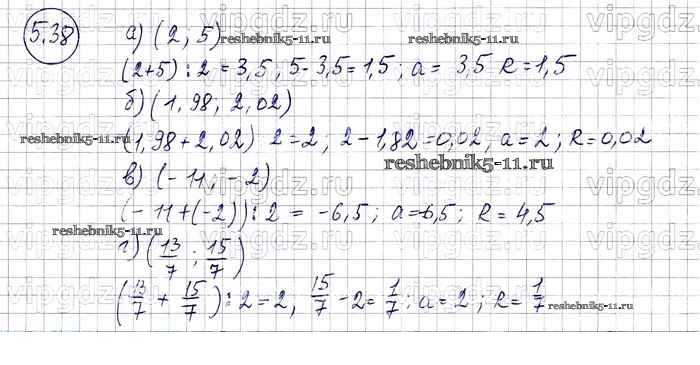 5.38
а) (2; 5)
(2+5) : 2 = 3,5, 5-3,5=1,5; a = 3,5 R=1,5
б) (1,98; 2,02)
(1,98 + 2,02) 2=2, 2-1,82=0,02, a=2; R=0,02
в) (-11; -2)
(-11+(-2)):2 = -6,5; a=-6,5; R = 4,5
г) (13/7; 15/7)
(13/7 + 15/7) : 2 = 2, 15/7 - 2 = 1/7; a = 2; R = 1/7
reshebnik5-11.ru
reshebnik5-11.ru
reshebnik5-11.ru
reshebnik5-11.ru
reshebnik5-11.ru
reshebnik5-11.ru
vipgdz
vipgdz.com
vipgdz.com
vipgdz.com